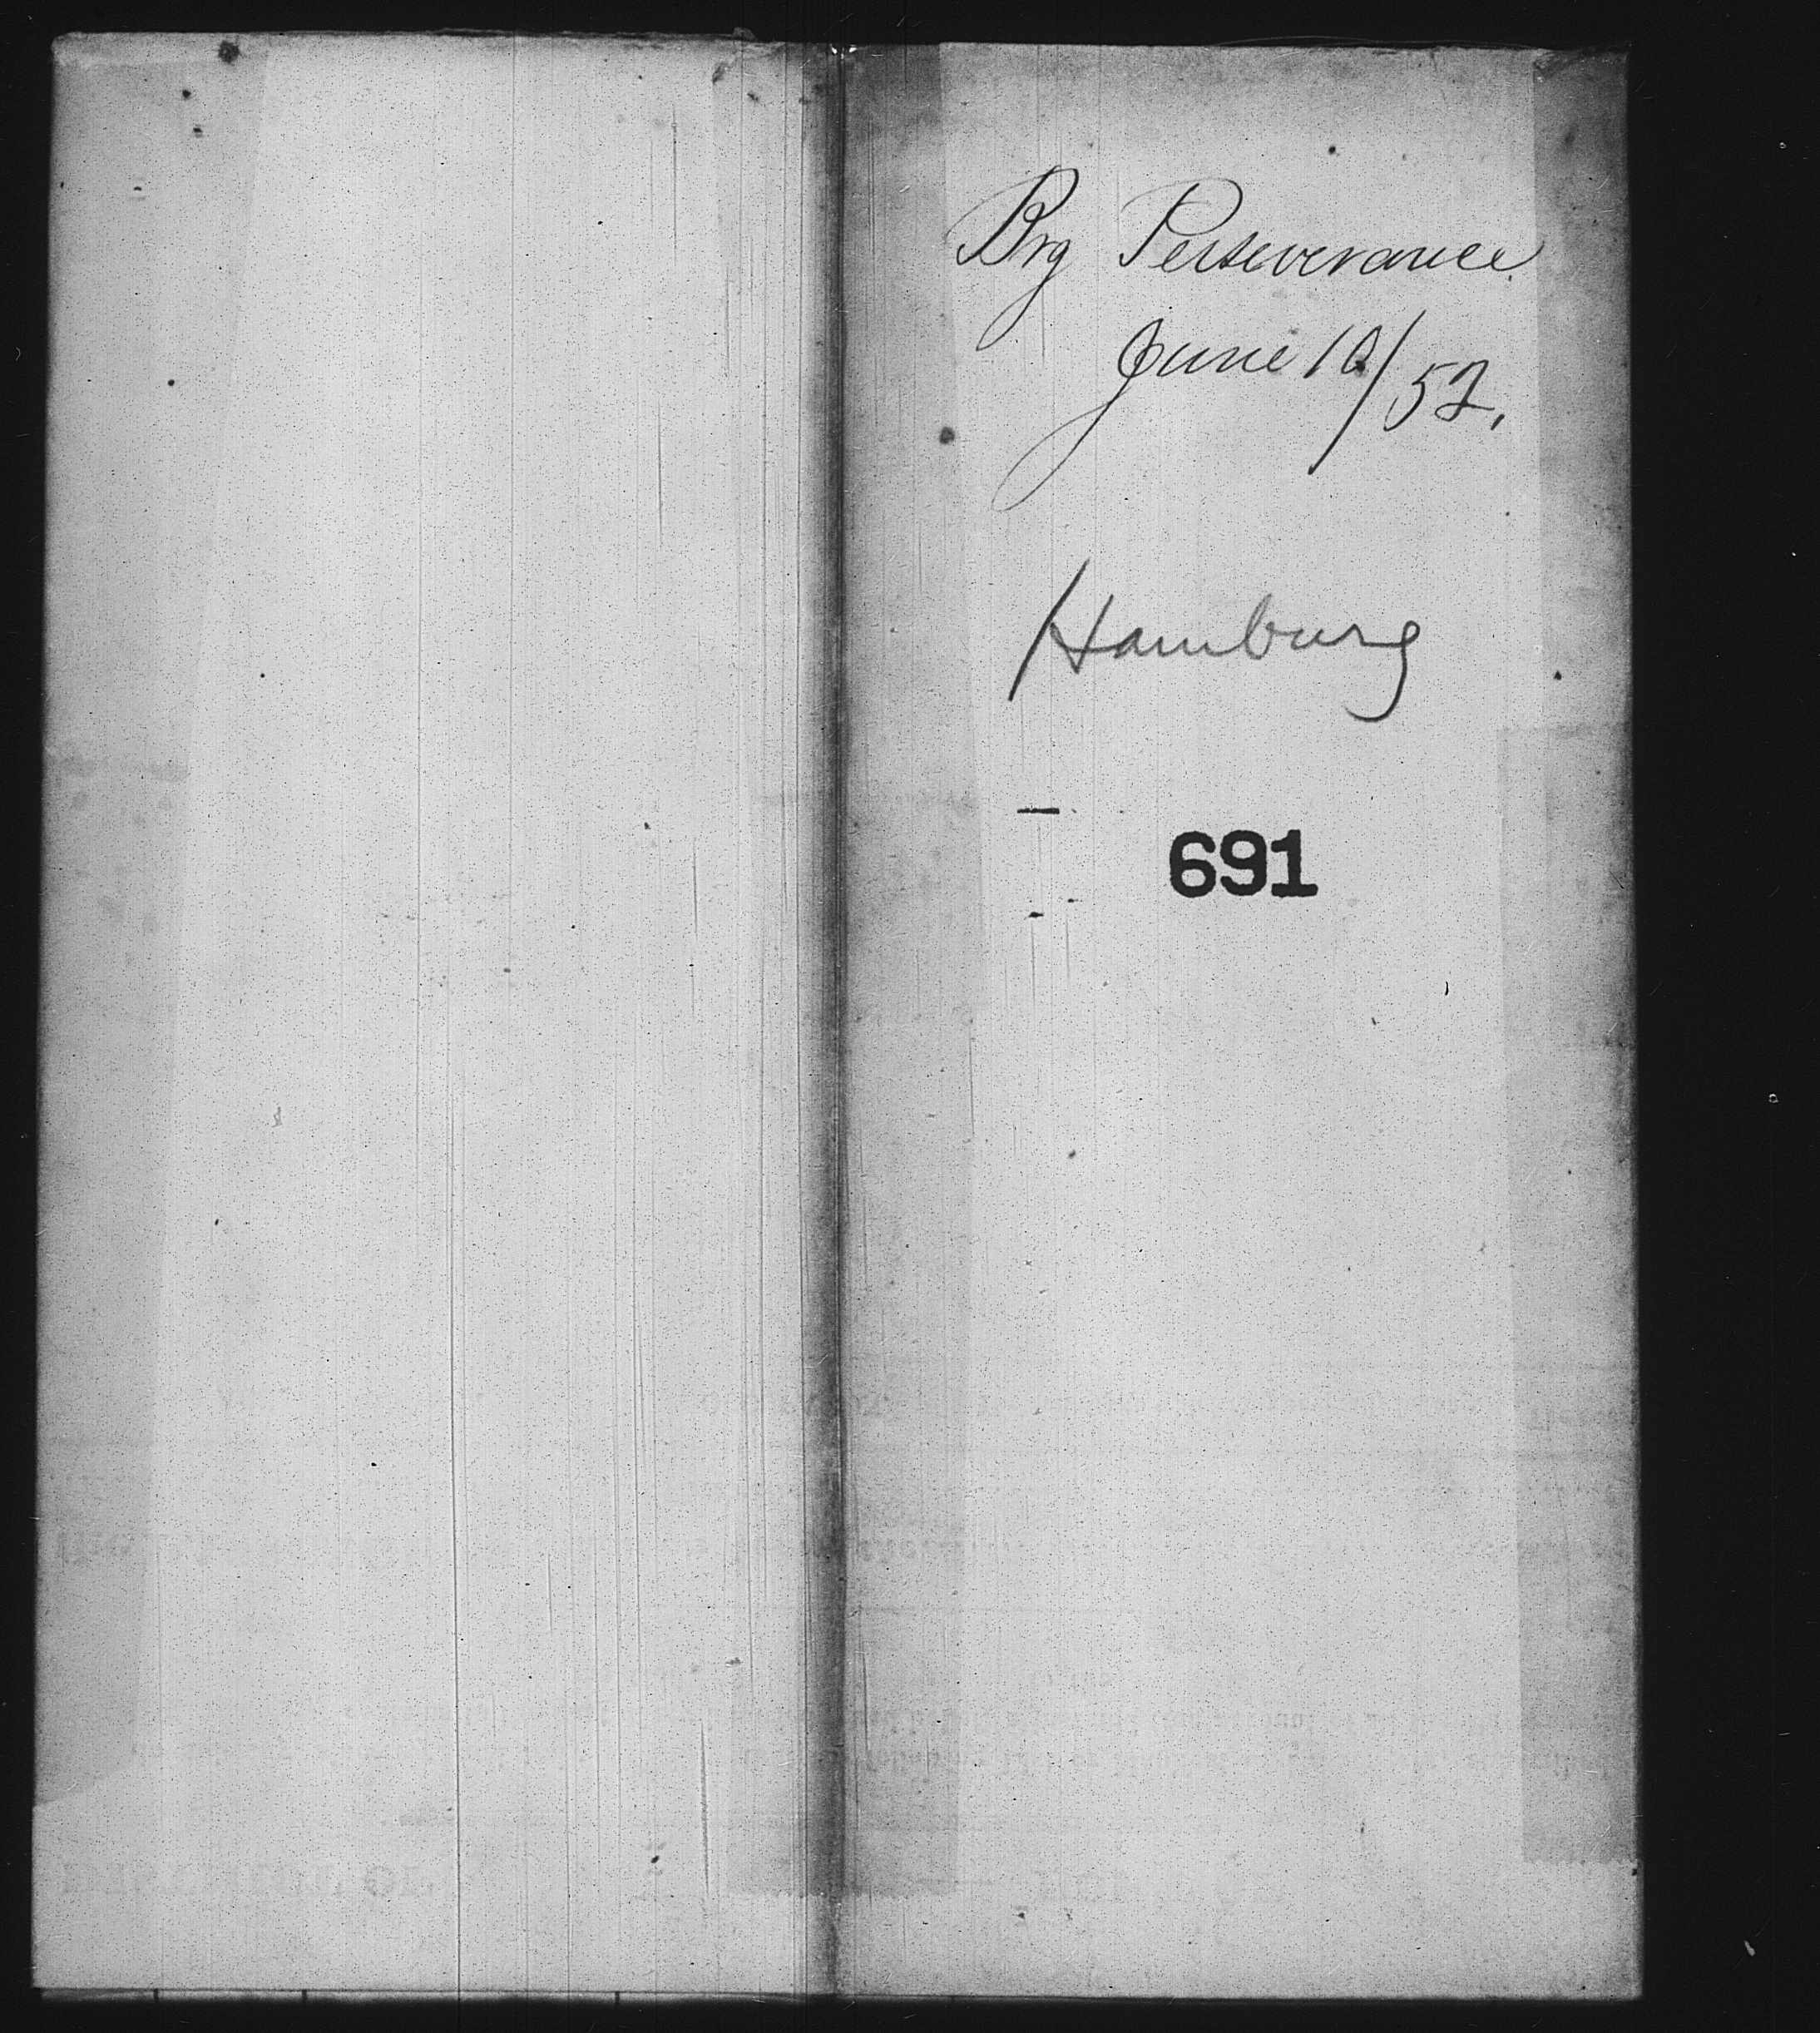 Brg Perseverance.
June 10/52.
Hamburg
691